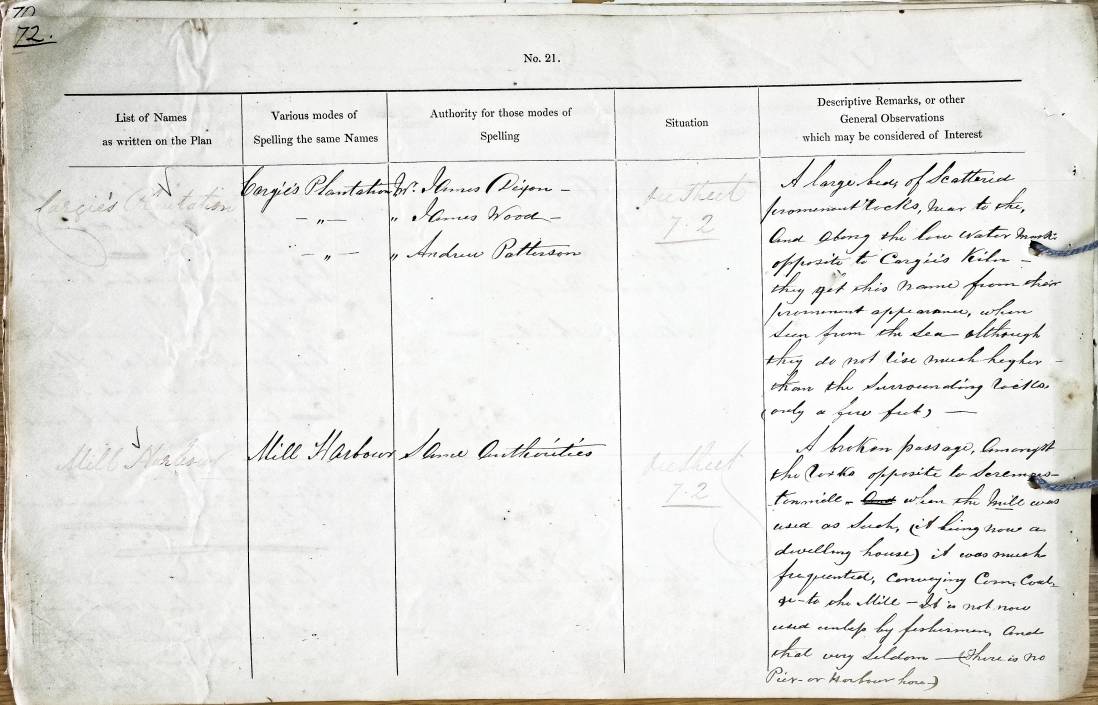 70
72.
No. 21.
List of Names
as written on the Plan
Various modes of
Spelling the same Names
Authority for those modes of
Spelling
Situation
Descriptive Remarks, or other
General Observations
which may be considered of Interest
Cargie's Plantation
Cargie's Plantation
Mr. James Dixon –
– " –
" James Wood –
– " –
" Andrew Patterson
See Sheet
7.2
A large beds of Scattered
prominent rocks, near to the,
and along the low water mark
opposite to Cargie's Kiln –
they get this name from their
prominent appearance, when
seen from the sea although
they do not rise much higher –
than the surrounding rocks
(only a few feet) —
Mill Harbour
Mill Harbour
Same Authorities
See Sheet
7.2
A broken passage, amongst
the rocks opposite to Scremers-
tonmill. And when the Mill was
used as such, (it being now a
dwelling house) it was much
frequented, conveying Corn, Coal,
&c – to the Mill – It is not now
used unless by fishermen, and
that very seldom — (There is no
Pier – or Harbour here –)